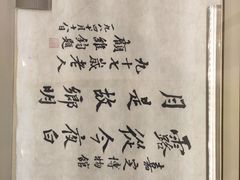 嘉定博物館
露從今夜白
月是故鄉明
九十七歲老人
顧維鈞題